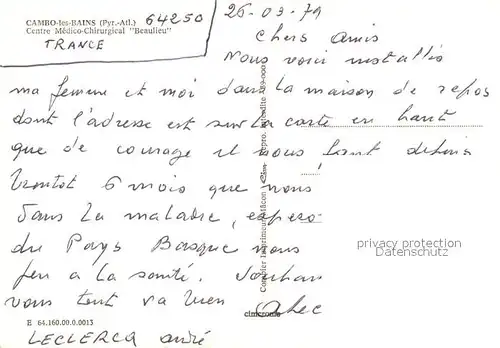 CAMBO-les-BAINS (Pyr.-Atl.) 64250
Centre Médico-Chirurgical "Beaulieu"
FRANCE
26-03-79
Chers Amis
Nous voici installés
ma femme et moi dans la maison de repos
dont l'adresse est sur la carte en haut
que de courage il nous faut depuis
bientot 6 mois que nous
dans la maladie,
du Pays Basque nous
feu a la santé.
vous tout va bien
cimcrome
E 64.160.00.0.0013
LECLERCQ André
privacy protection
Datenschutz